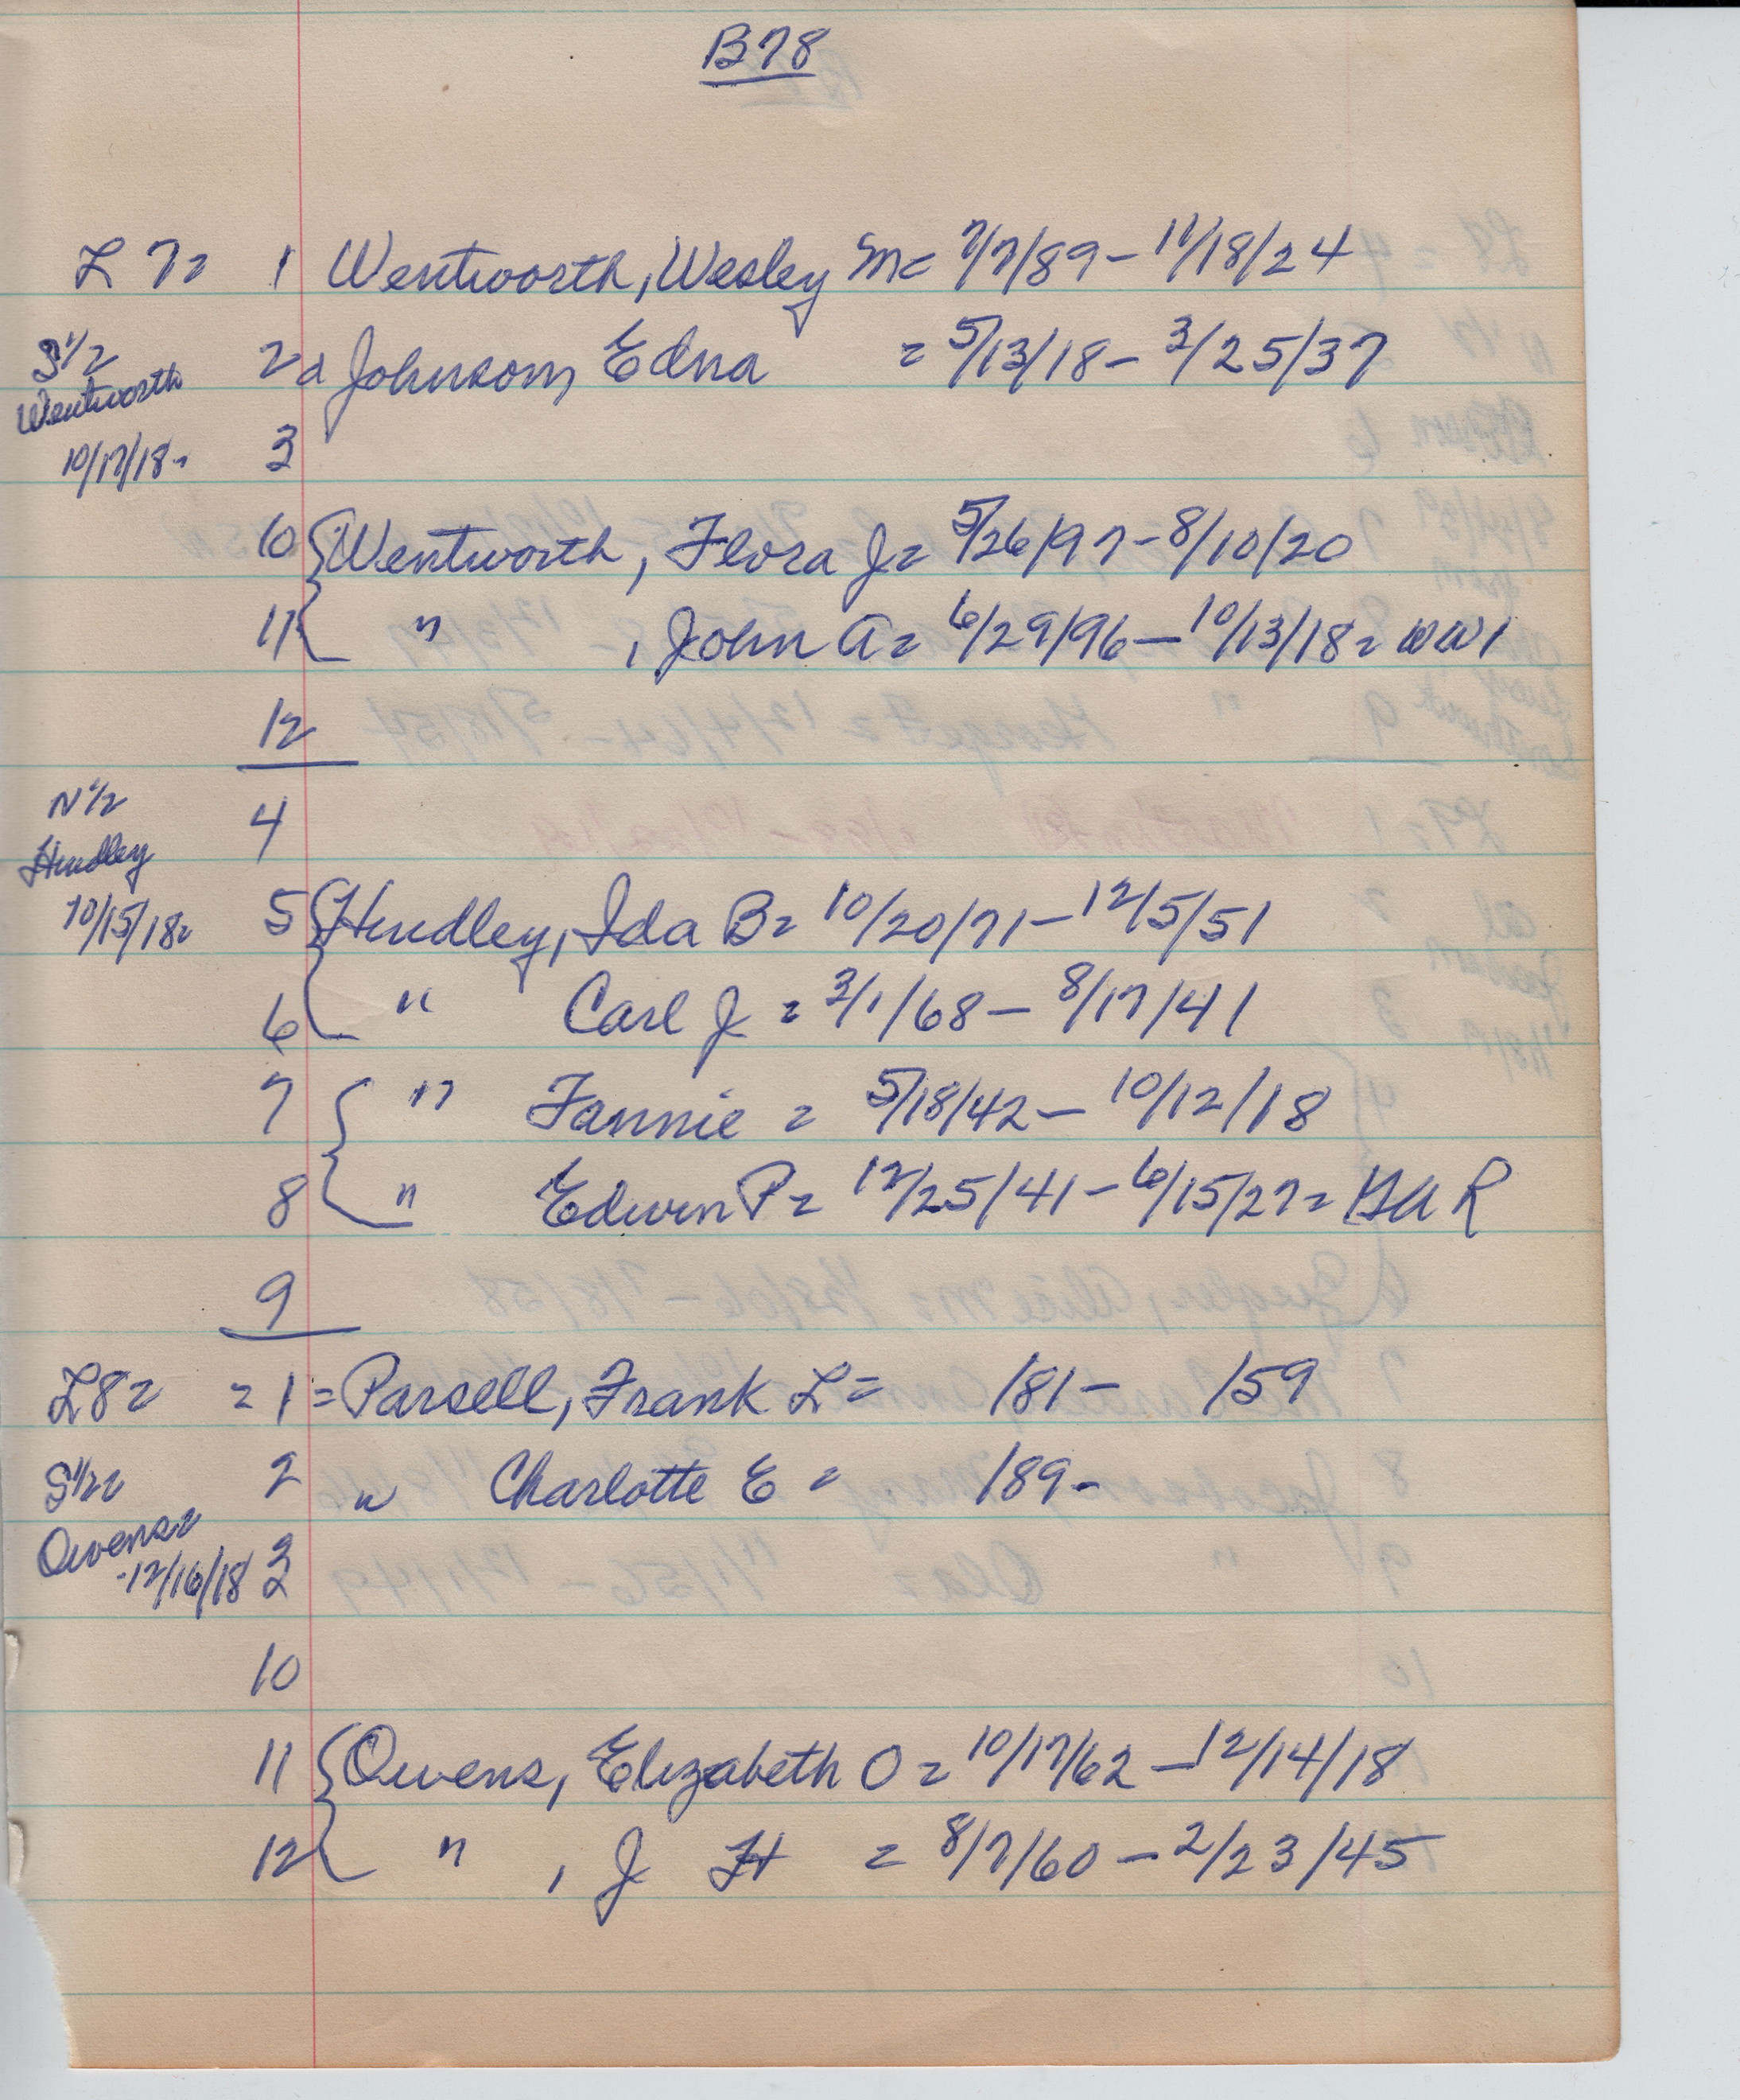 B78
L 7= 1 Wentworth, Wesley M= 7/7/89 - 11/18/24
S 1/2 2 d Johnson, Edna = 5/13/18 - 3/25/37
Wentworth
10/17/18- 3
10 { Wentworth, Flora J= 5/26/97 - 8/10/20
11 { " , John A= 6/29/96 - 10/13/18= WW1
12
N 1/2 4
Hindley
10/15/18= 5 { Hindley, Ida B= 10/20/71 - 12/5/51
6 { " Carl J = 3/1/68 - 8/17/41
7 { " Fannie = 5/18/42 - 10/12/18
8 { " Edwin P= 12/25/41 - 6/15/27= GAR
9
L8= = 1 = Parsell, Frank L= /81 - /59
S 1/2= 2 " Charlotte E = /89 -
Owens=
-12/16/18 3
10
11 { Owens, Elizabeth O = 10/17/62 - 12/14/18
12 { " , J H = 8/7/60 - 2/23/45